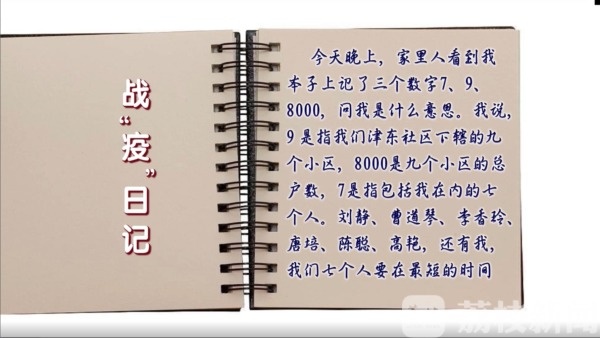 战“疫”日记
今天晚上，家里人看到我
本子上记了三个数字7、9、
8000，问我是什么意思。我说，
9是指我们津东社区下辖的九
个小区，8000是九个小区的总
户数，7是指包括我在内的七
个人。刘静、曹道琴、李香玲、
唐培、陈聪、高艳，还有我，
我们七个人要在最短的时间
荔枝新闻